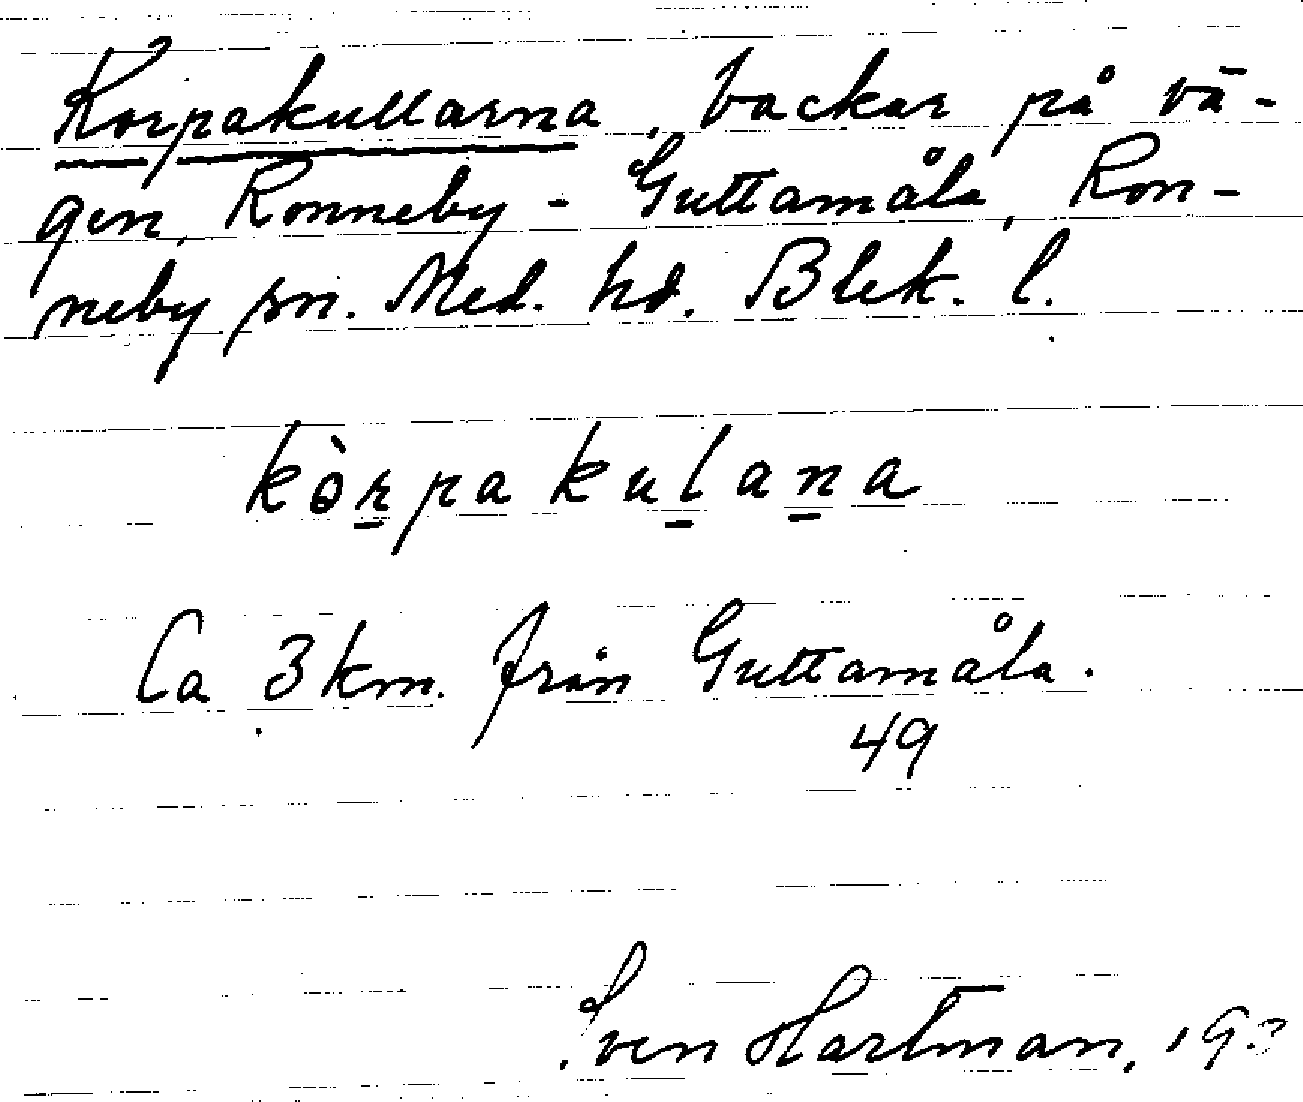 Korpakullarna, backar på vä-
gen, Ronneby - Guttamåla, Ron-
neby sn. Med. hd. Blek. l.
kòrpakulana
Ca 3 km. från Guttamåla.
49
Sven Hartman,